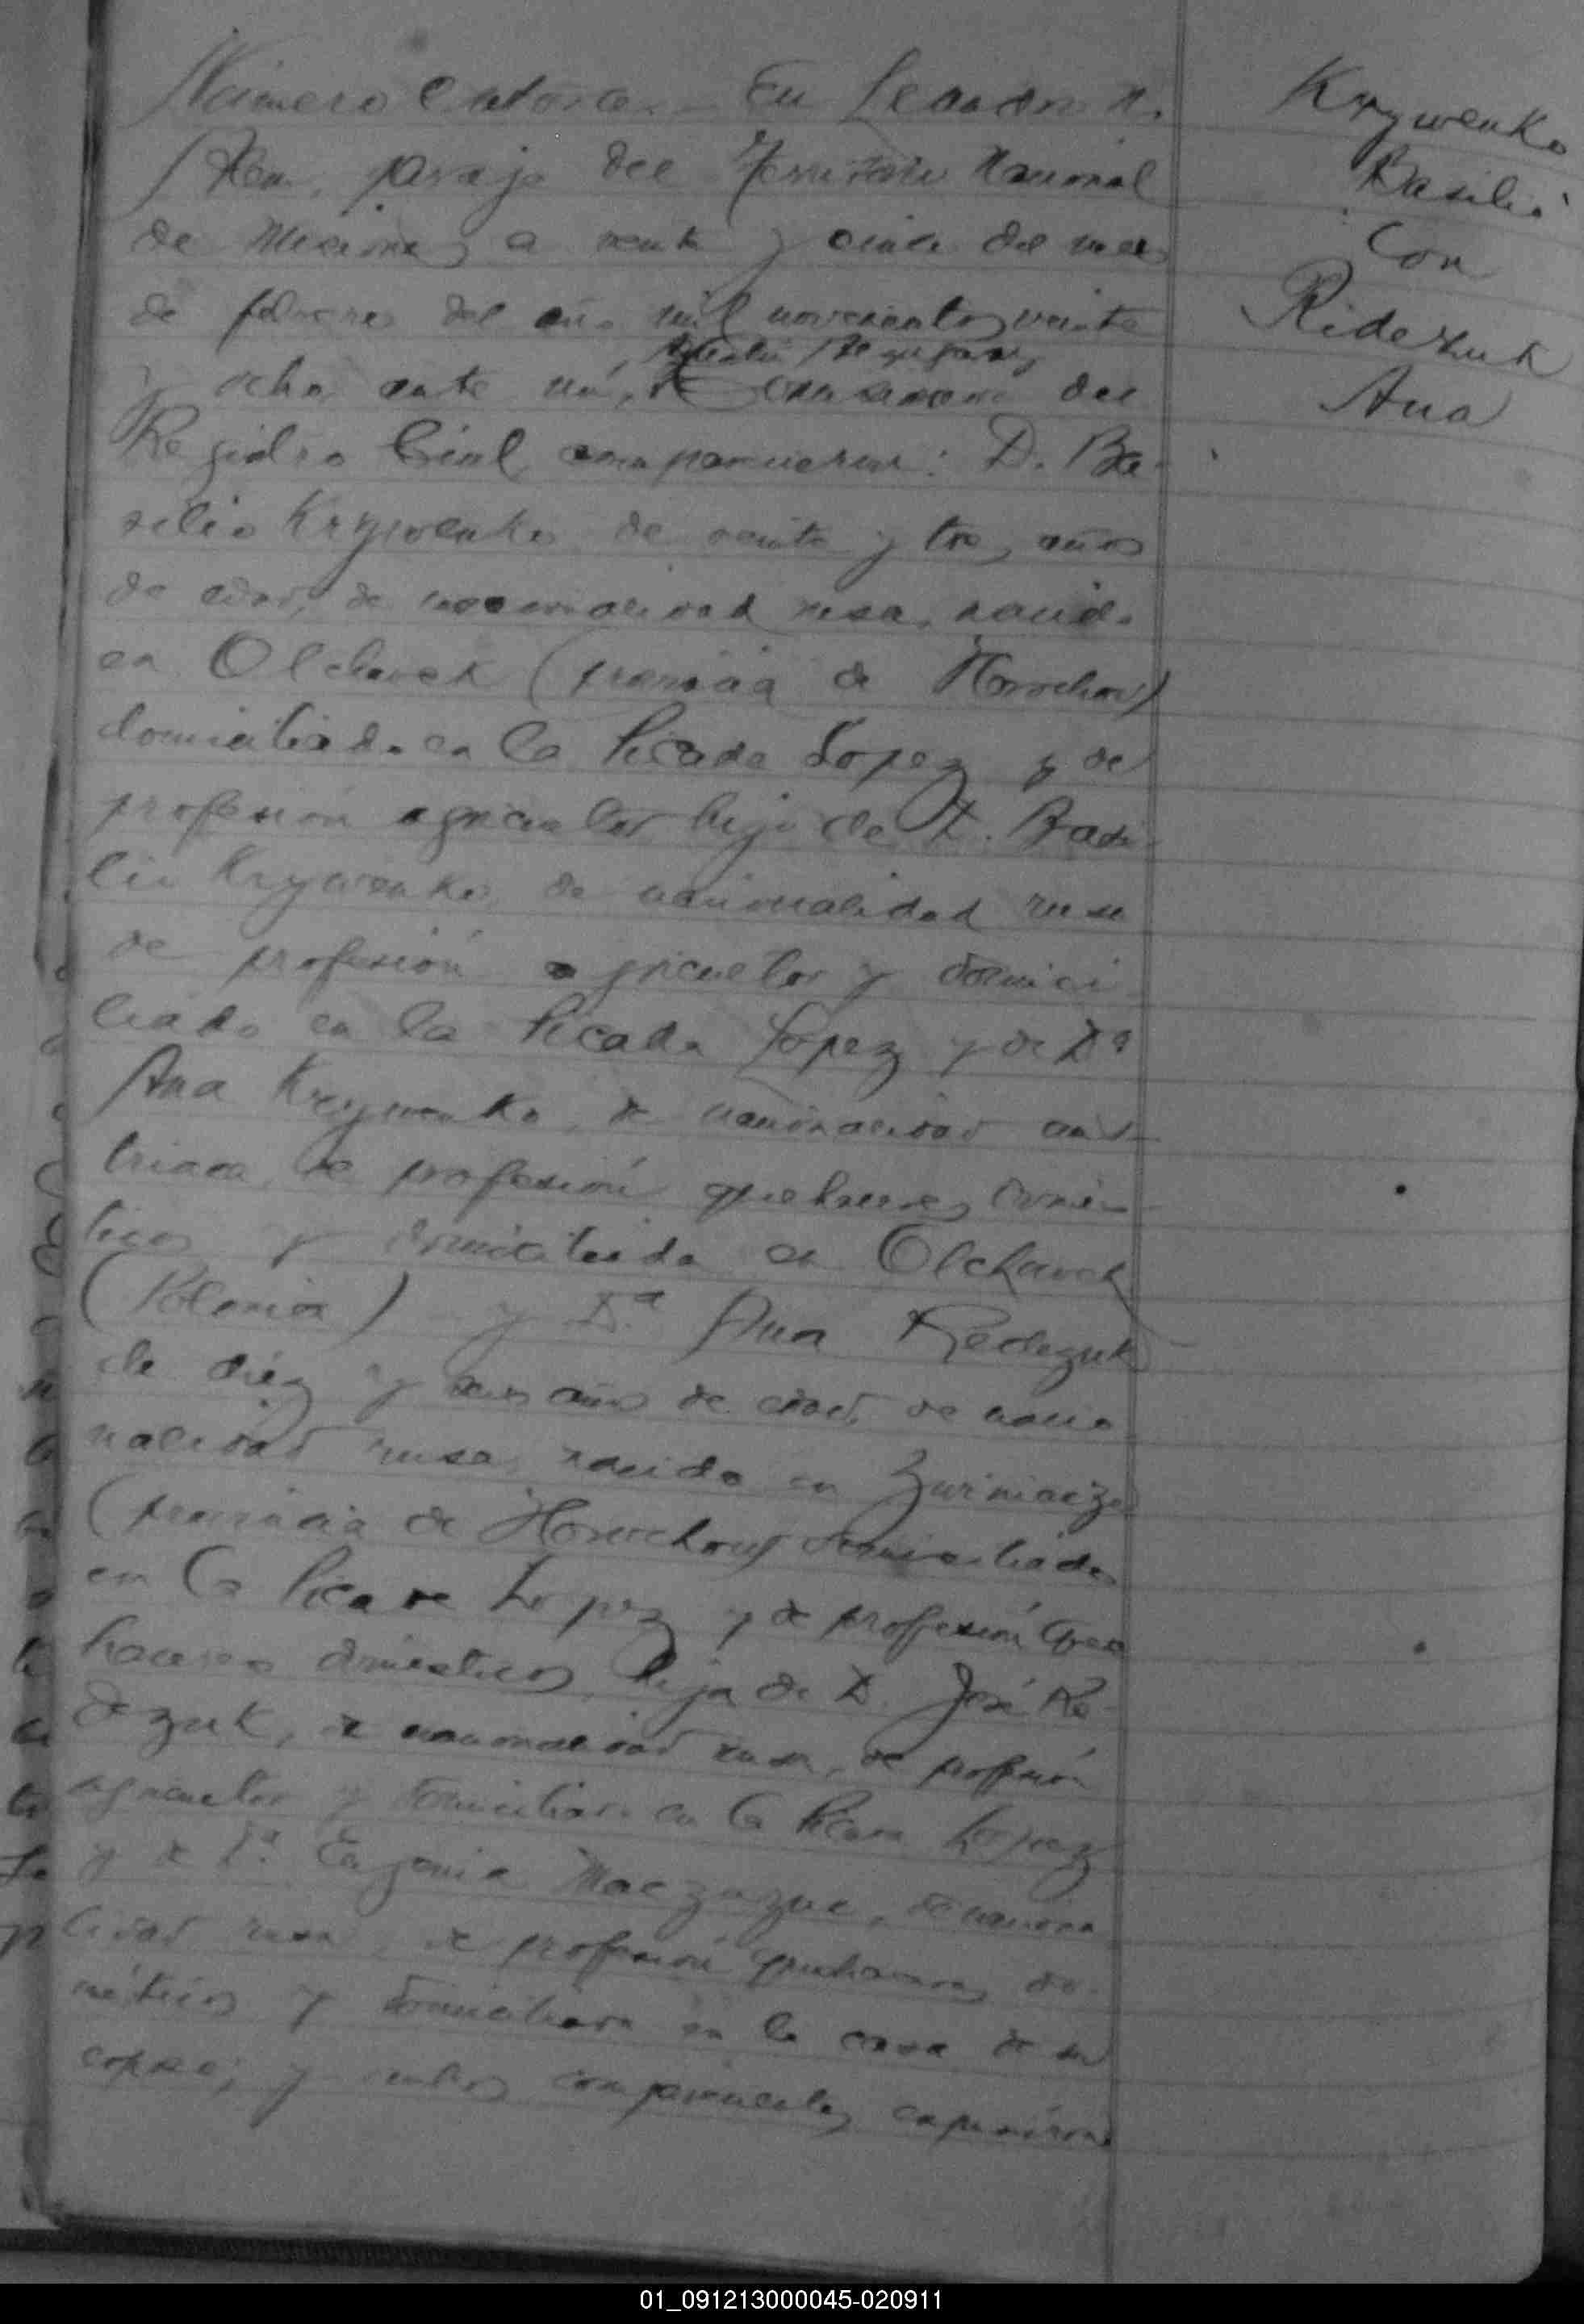 Número Catorce. En Leandro N.
Alem, paraje del Territorio Nacional
de Misiones a veinte y cinco del mes
de febrero del año mil novecientos veinte
y ocho ante mí, Comisario del
Registro Civil comparecieron: D. Ba-
silio Krywenko de veinte y tres años
de edad, de nacionalidad rusa, nacido
en Olchawek (provincia de Horochow)
domiciliado en la Picada Lopez y de
profesión agricultor hijo de D. Basi-
lio Krywenko, de nacionalidad rusa
de profesión agricultor y domici-
liado en la Picada Lopez y de Dª
Ana Krywenko, de nacionalidad aus-
triaca, de profesión quehaceres domés-
ticos y domiciliada en Olchawek
(Polonia) y Dª Ana Redezuk
de diez y seis años de edad, de nacio
nalidad rusa, nacida en
(provincia de Horochow) domiciliada
en la Picada Lopez y de profesión que
haceres domesticos, hija de D. José Re-
dezuk, de nacionalidad rusa, de profesión
agricultor y domiciliado en la Picada Lopez
y de Dª Eugenia de naciona
lidad rusa, de profesión quehaceres do-
mésticos y domiciliada en la casa de su
esposo; y ambos comparecientes expusieron
Krywenko
Basilio
Con
Ridezuk
Ana
01_091213000045-020911